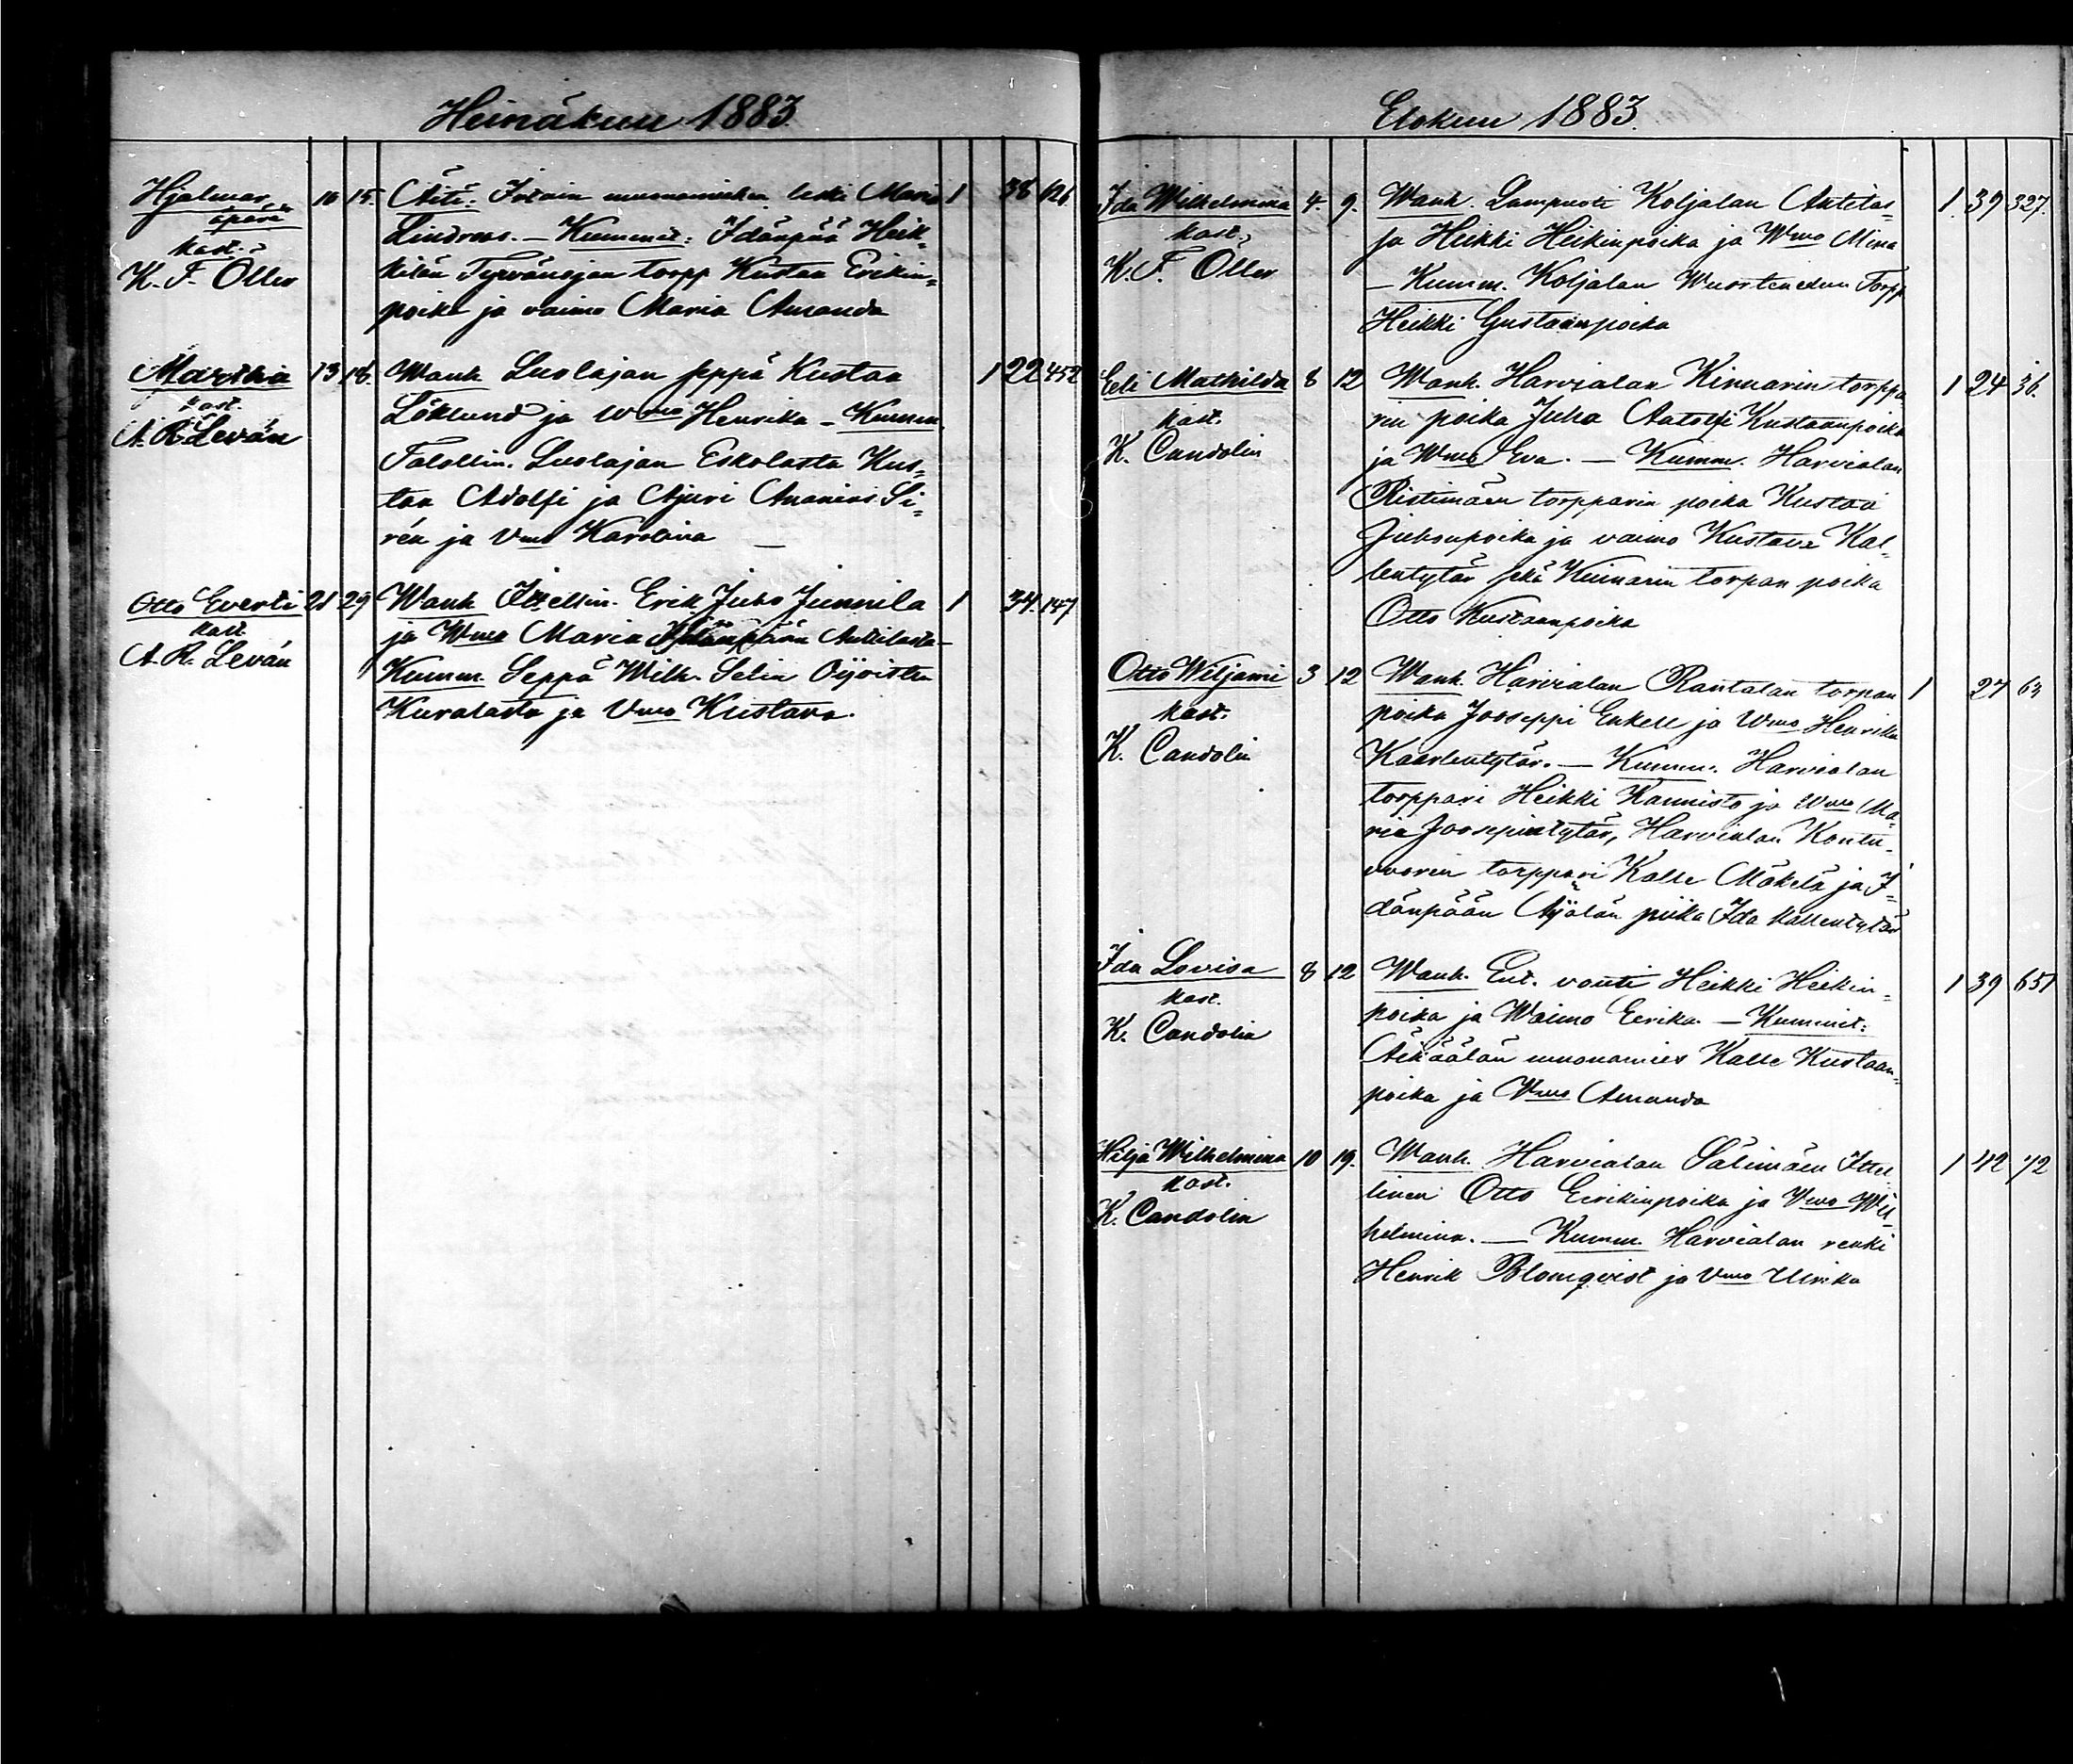 Heinäkuu 1883.
Hjalmar
äpärä
kast.
K. F. Öller
16 15. Äiti: muonamiehen leski Maria 1 38 626
Lindroos. — Kummit: Idänpää Heik-
kilän Tyrvänojan torpp Kustaa Erikin-
poika ja vaimo Maria Amanda
Martha
kast.
A. R. Levān
13 18. Wanh Luolajan seppä Kustaa 1 22 452
Löklund ja Wmo Henrika — Kumm.
Talollin. Luolajan Eskolasta Kus-
taa Adolfi ja Ajuri Ananias Si-
rén ja Vmo Karolina —
Otto Everti
kast
A. R. Levān
21 29 Wanh Itsellin. Erik Juho Junnila 1 34. 147
ja Wmo Maria Idänpään Anttilasta —
Kumm Seppä Wilh. Selin Öijoisten
Kuralasta ja Vmo Kustava.
Elokuu 1883.
Ida Wilhelmina
kast.
K. F. Öller
4. 9. Wanh. Lampuoti Koljalan Anttilas-
sa Heikki Heikinpoika ja Wmo Mina
— Kumm. Koljalan Torpp
Heikki Gustaanpoika
1. 39 327.
Eeli Mathilda
kast.
K. Candolin
8 12 Wanh. Harvialan Kinnarin torppa 1 24 36.
rin poika Juho Aatolfi Kustaanpoika
ja Wmo Eva. — Kumm. Harvialan
Ristimäen torpparin poika Kustaa
Juhonpoika ja vaimo Kustava Kal-
lentytär sekä Kinnarin torpan poika
Otto Kustaanpoika
Otto Wiljami
kast.
K. Candolin
3 12 Wanh. Harvialan Rantalan torpan 1 27 63
poika Jooseppi Enkell ja Wmo Henrika
Kaarlentytär. — Kumm. Harvialan
torppari Heikki Kannisto ja Wmo Ma-
ria Joosepintytär, Harvialan Kontu-
vuoren torppari Kalle Mäkelä ja I-
dänpään Äijälän piika Ida Kallentytär
Ida Lovisa
kast.
K. Candolin
8 12 Wanh. Ent. vouti Heikki Heikin- 1 39 651
poika ja Waimo Eerika. — Kummit:
Äikäälän muonamies Kalle Kustaan-
poika ja Vmo Amanda
Hilja Wilhelmina
kast.
K. Candolin
10 19. Wanh. Harvialan Sälimäen Itsel- 1 42 72
linen Otto Eerikinpoika ja Vmo Wil-
helmina. — Kumm. Harvialan renki
Henrik Blomqvist ja Vmo Ulrika